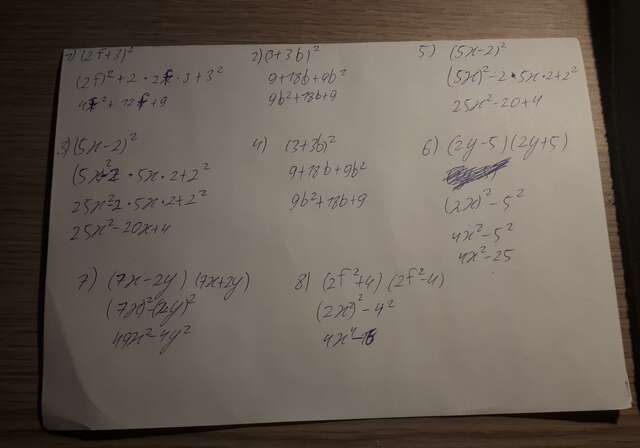 1) (2f+3)²
(2f)²+2·2f·3+3²
4f²+12f+9
2) (3+3b)²
9+18b+9b²
9b²+18b+9
5) (5x-2)²
(5x)²-2·5x·2+2²
25x²-20+4
3) (5x-2)²
(5x²-2·5x·2+2²
25x²-2·5x·2+2²
25x²-20x+4
4) (3+3b)²
9+18b+9b²
9b²+18b+9
6) (2y-5)(2y+5)
(2x)²-5²
4x²-5²
4x²-25
7) (7x-2y)(7x+2y)
(7x)²-(2y)²
49x²-4y²
8) (2f²+4)(2f²-4)
(2x²)²-4²
4x⁴-16